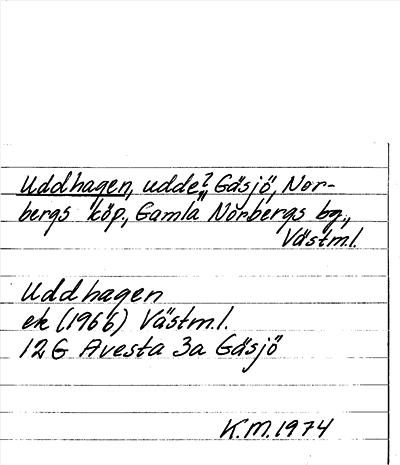 Uddhagen, udde? Gäsjö, Nor-
bergs köp., Gamla Norbergs bg.,
Västml.
Uddhagen
ek (1966) Västm.l.
12G Avesta 3a Gäsjö
K.M. 1974